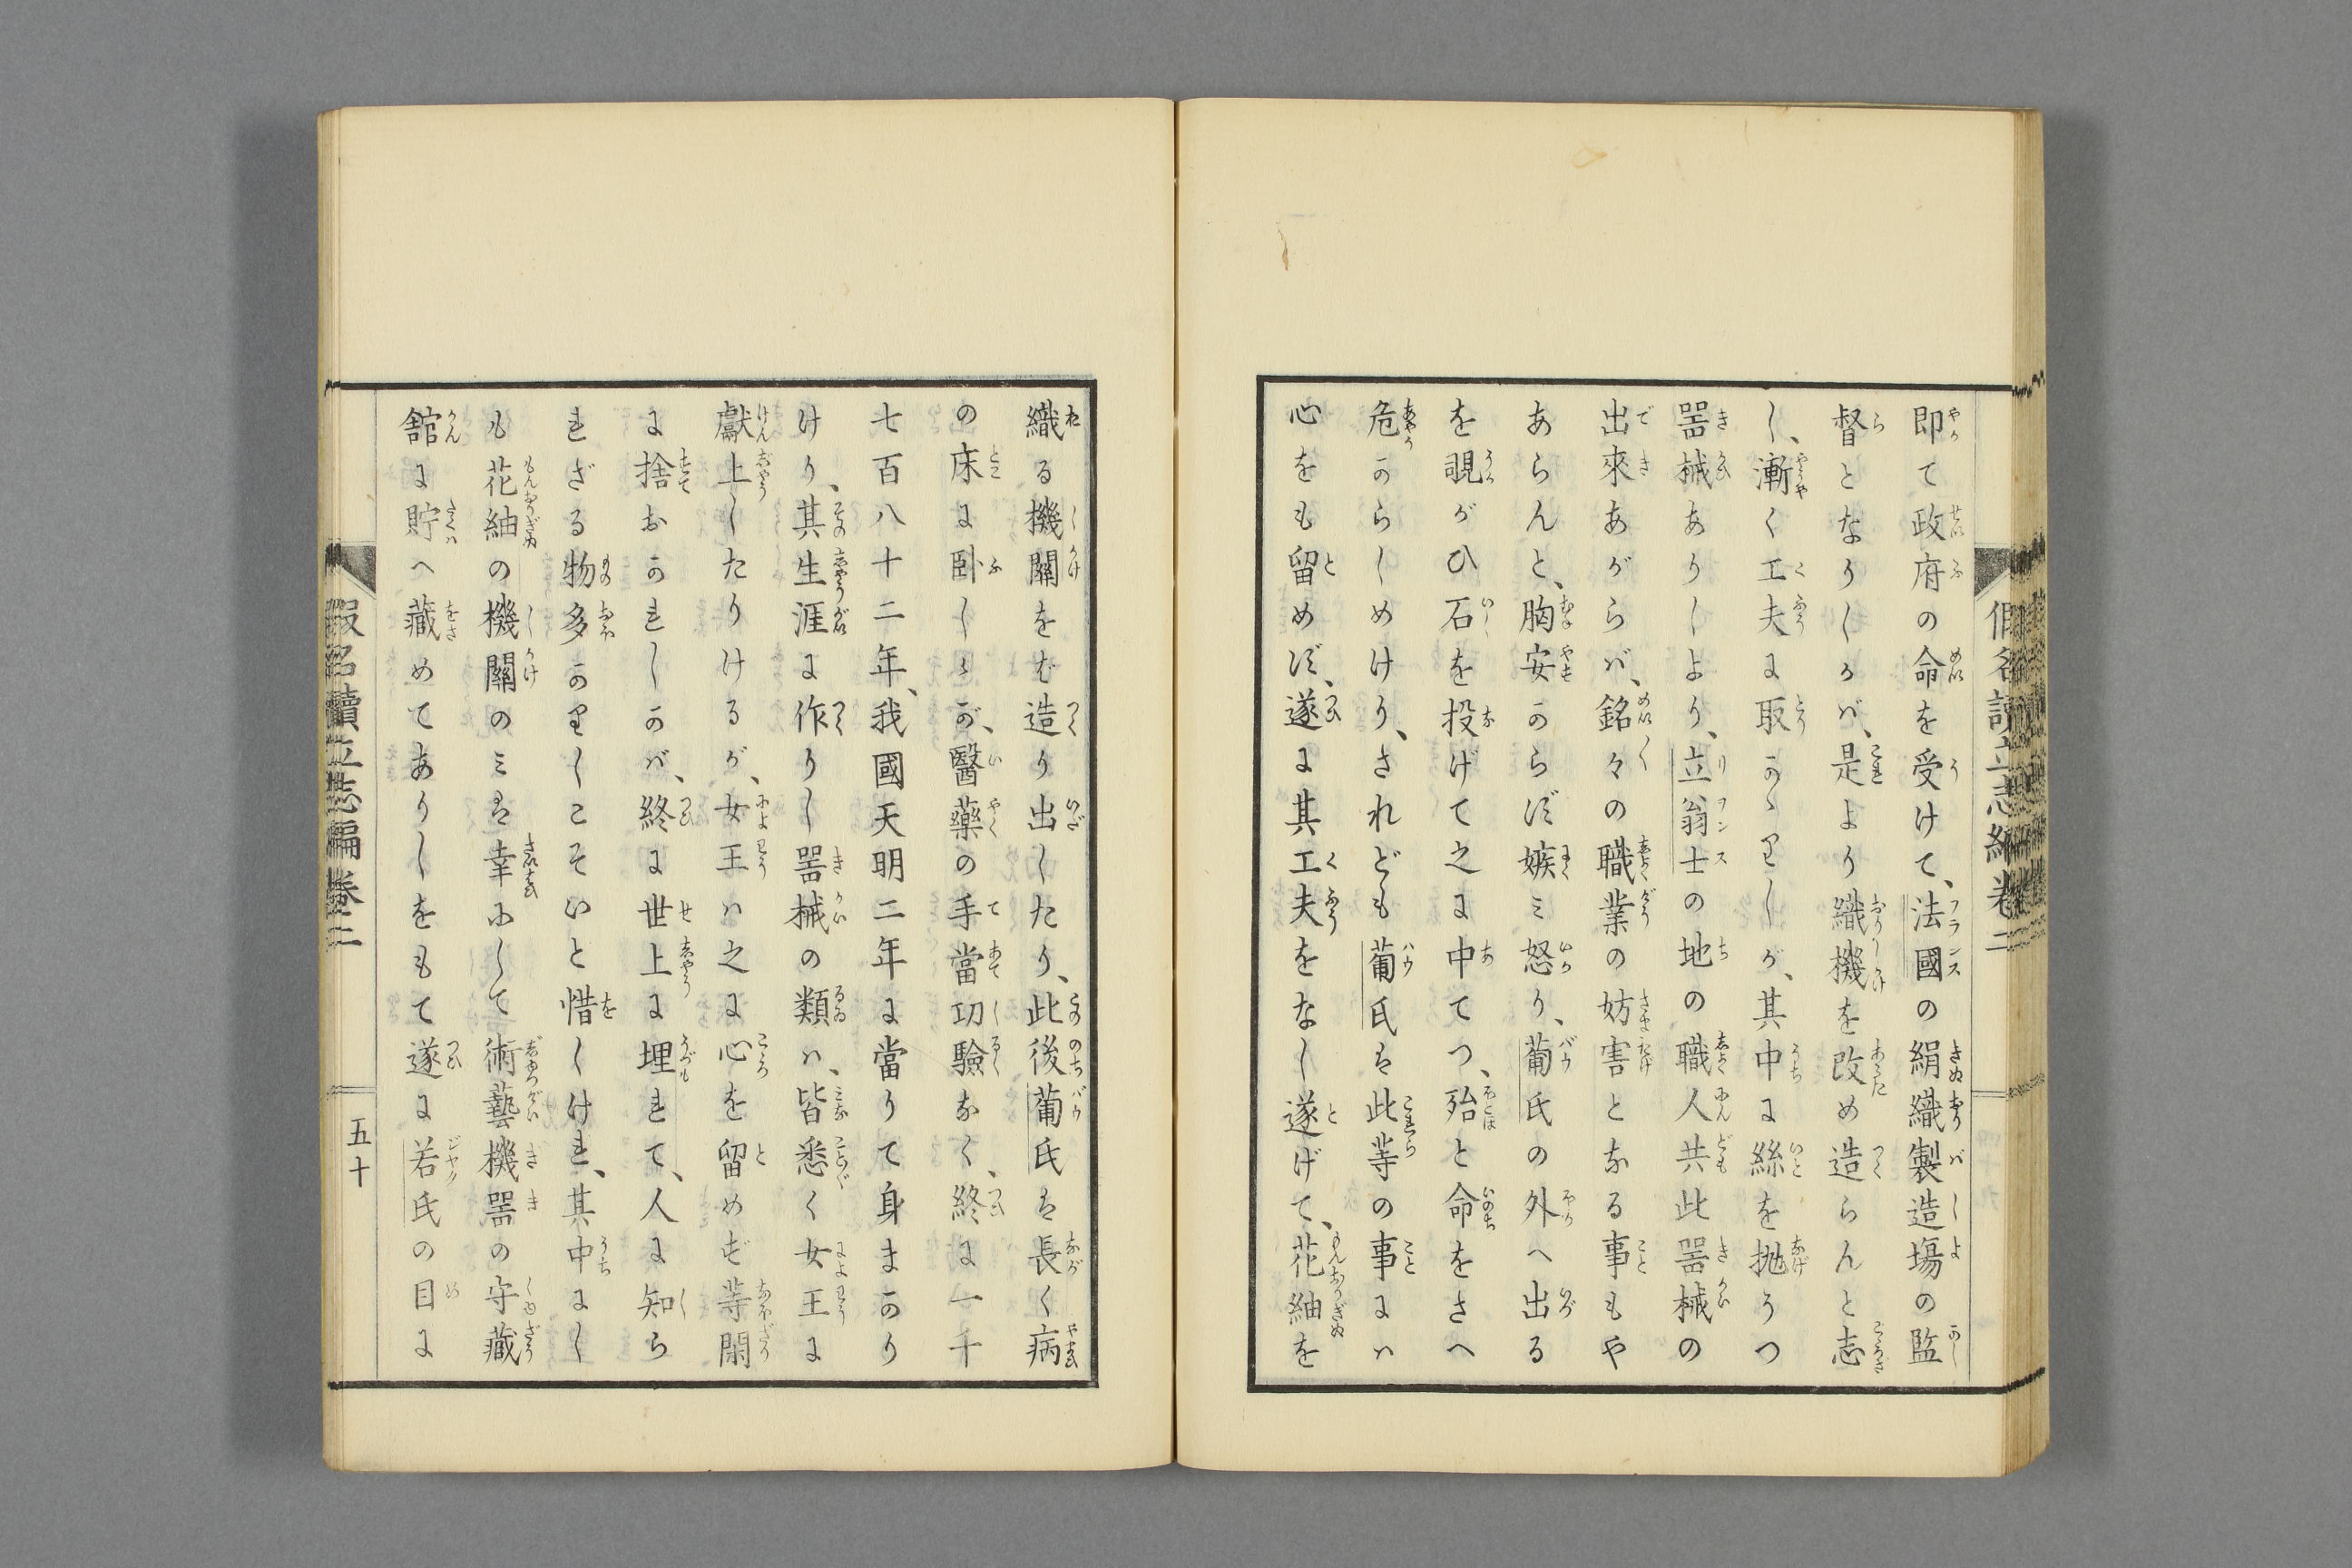 即て政府の命を受けて、法國の絹織製造塲の監
督となりしかバ、是より織機を改め造らんと志
し、漸く工夫に取かゝりしが、其中に絲を抛うつ
噐械ありしより、立翁士の地の職人共此噐械の
出來あがらバ、銘々の職業の妨害となる事もや
あらんと、胸安からず嫉ミ怒り、葡氏の外へ出る
を覗がひ石を投げて之に中てつ、殆と命をさへ
危からしめけり、されども葡氏は此等の事にハ
心をも留めず、遂に其工夫をなし遂げて、花紬を
假名讀立志編卷二
織る機關をば造り出したり、此後葡氏は長く病
の床に卧しゝが、醫藥の手當功驗なく、終に一千
七百八十二年、我國天明二年に當りて身まかり
けり、其生涯に作りし噐械の類ハ、皆悉く女王に
獻上したりけるが、女王ハ之に心を留めず等閑
に捨おかれしかバ、終に世上に埋れて、人に知ら
れざる物多かりしこそいと惜しけれ、其中にし
も花紬の機關のミは幸にして術藝機噐の守藏
舘に貯へ藏めてありしをもて遂に若氏の目に
假名讀立志編卷二
五十